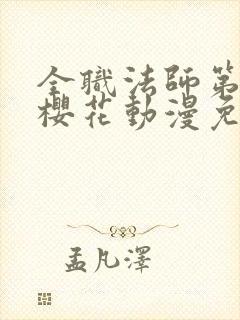 全職法師第
櫻花動漫免
孟凡澤